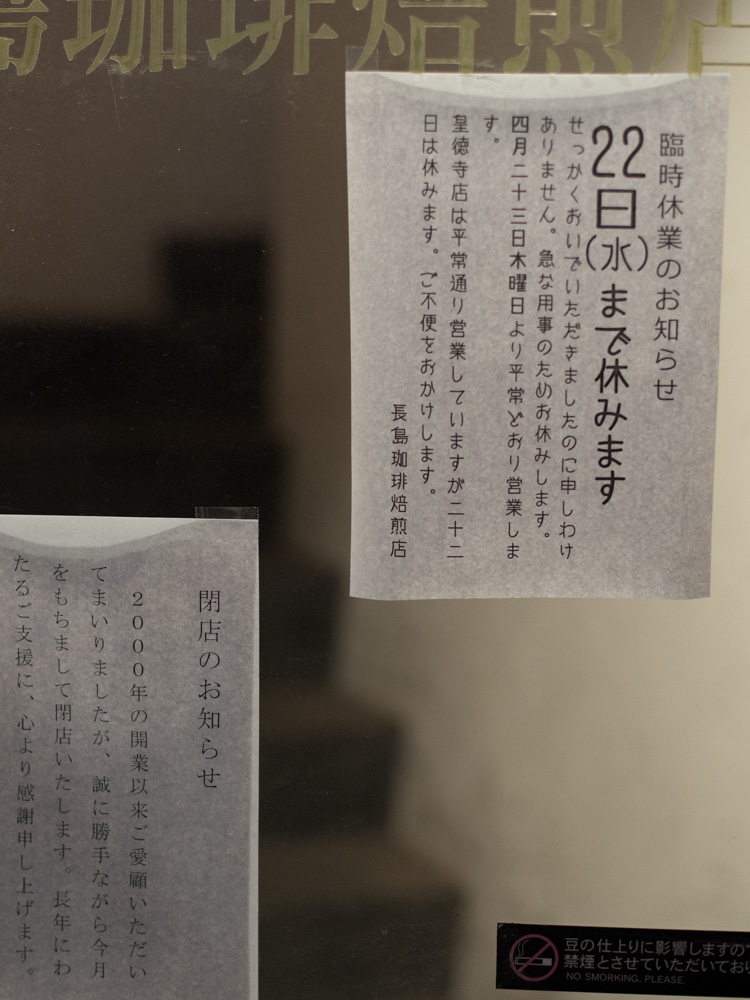 島珈琲焙煎店
臨時休業のお知らせ
22日(水)まで休みます
せっかくおいでいただきましたのに申しわけ
ありません。急な用事のためお休みします。
四月二十三日木曜日より平常どおり営業しま
す。
皇徳寺店は平常通り営業していますが二十二
日は休みます。ご不便をおかけします。
長島珈琲焙煎店
閉店のお知らせ
2000年の開業以来ご愛顧いただい
てまいりましたが、誠に勝手ながら今月
をもちまして閉店いたします。長年にわ
たるご支援に、心より感謝申し上げます。
豆の仕上りに影響しますので
禁煙とさせていただいており
NO SMORKING, PLEASE.